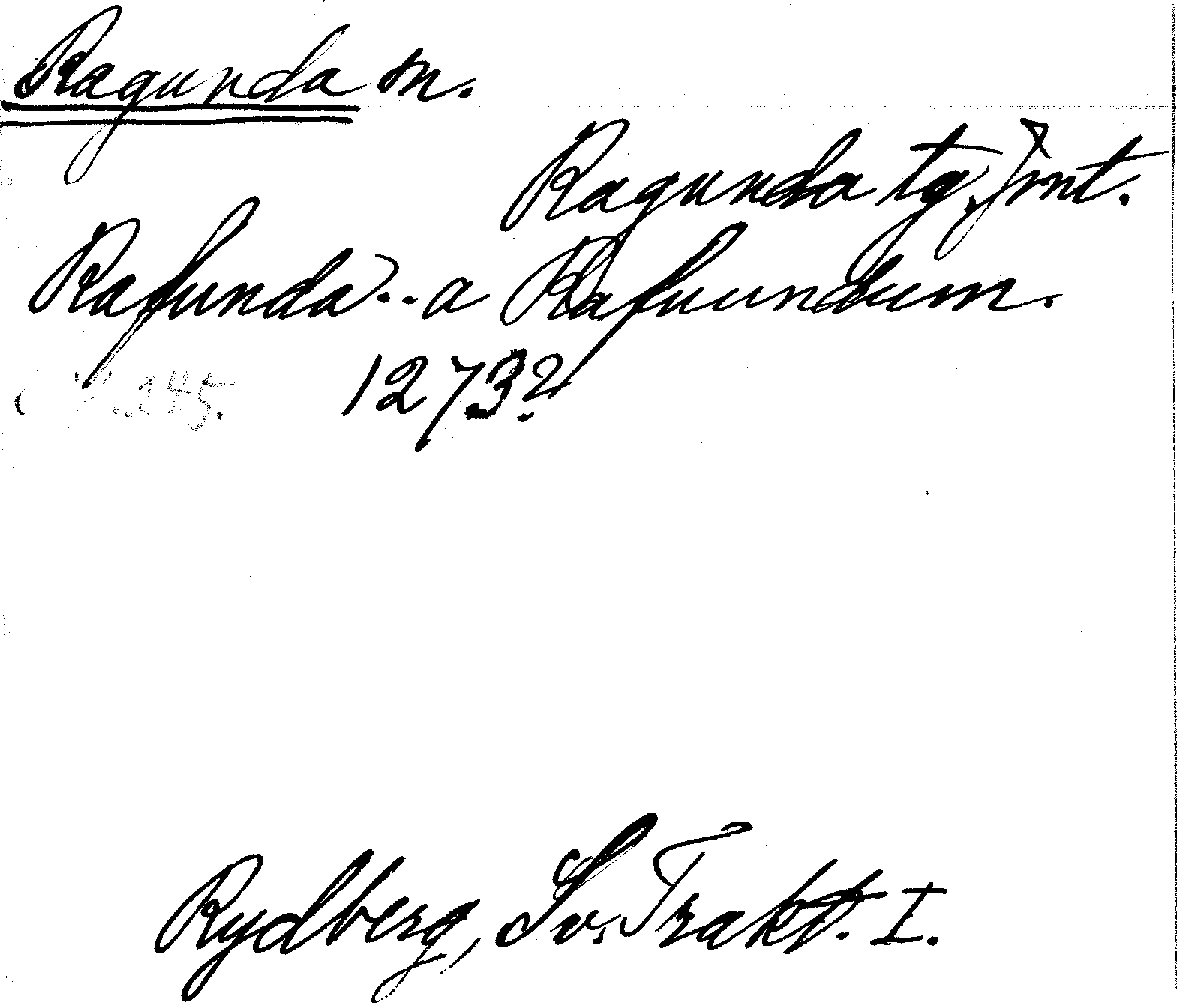 Ragunda sn.
Ragunda tg, Jmt.
Rafunda.. a Rafuundum.
1273?
345.
Rydberg, Sv. Trakt. I.